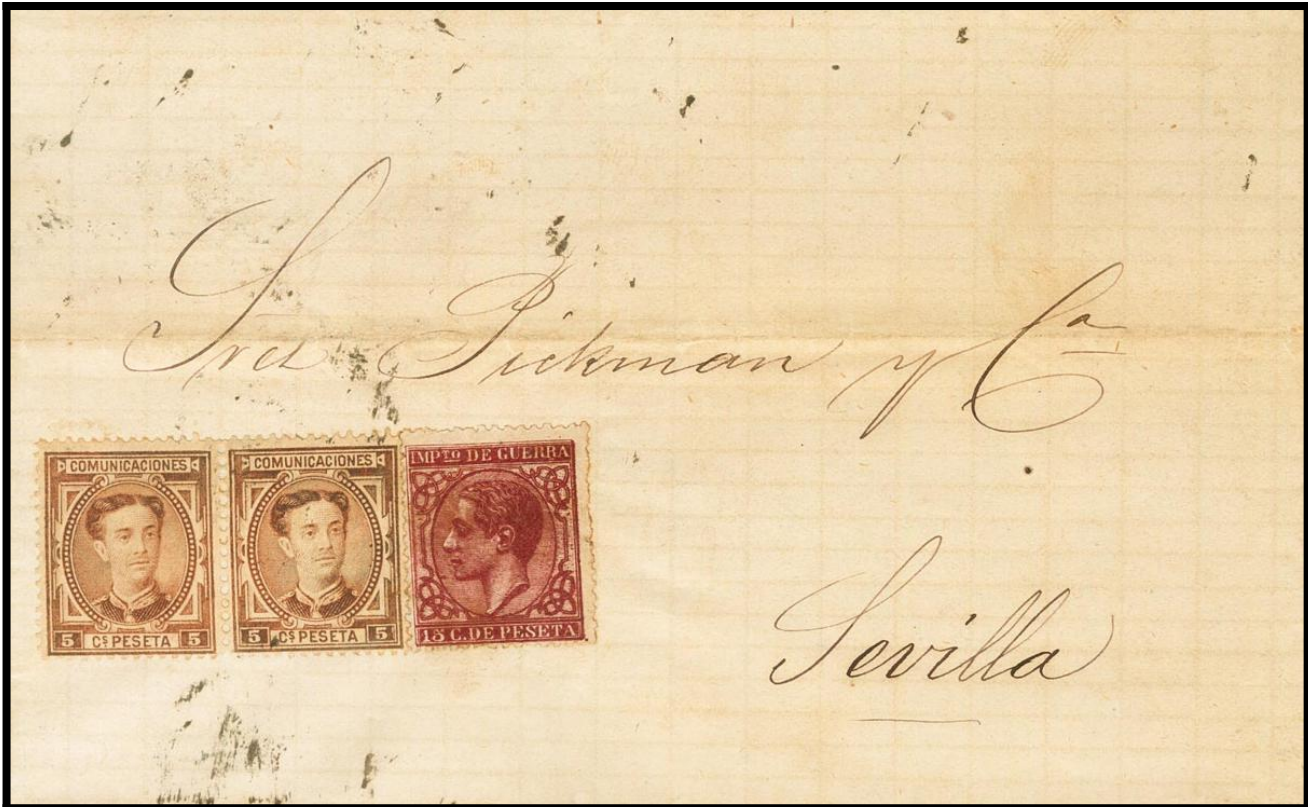 Sres Pickman y Ca
COMUNICACIONES
5 Cs PESETA 5
COMUNICACIONES
5 Cs PESETA 5
IMPTO DE GUERRA
15 C. DE PESETA
Sevilla